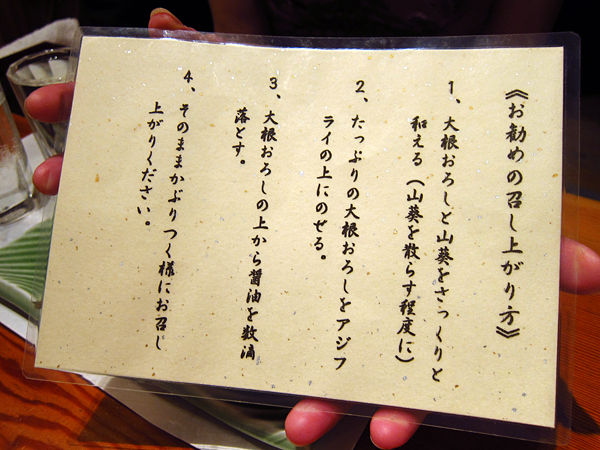 《お勧めの召し上がり方》
1、大根おろしと山葵をさっくりと
和える（山葵を散らす程度に）
2、たっぷりの大根おろしをアジフ
ライの上にのせる。
3、大根おろしの上から醤油を数滴
落とす。
4、そのままかぶりつく様にお召し
上がりください。